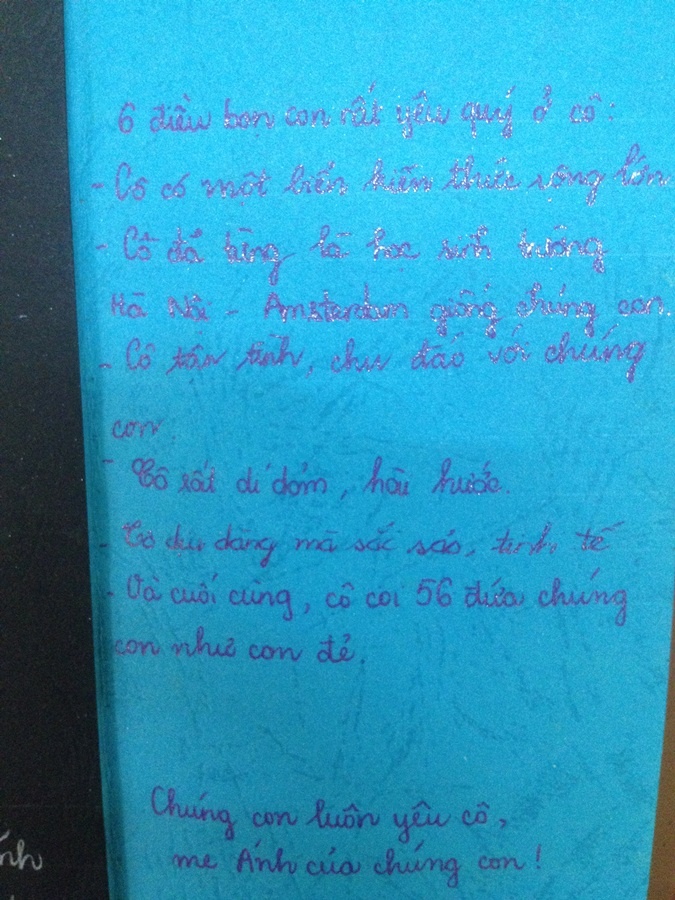 6 điều bọn con rất yêu quý ở cô:
- Cô có một biển kiến thức rộng lớn
- Cô đã từng là học sinh trường
Hà Nội - Amsterdam giống chúng con.
- Cô tận tình, chu đáo với chúng
con.
- Cô rất dí dỏm, hài hước.
- Cô dịu dàng mà sắc sảo, tinh tế
- Và cuối cùng, cô coi 56 đứa chúng
con như con đẻ.
Chúng con luôn yêu cô,
mẹ Ánh của chúng con!